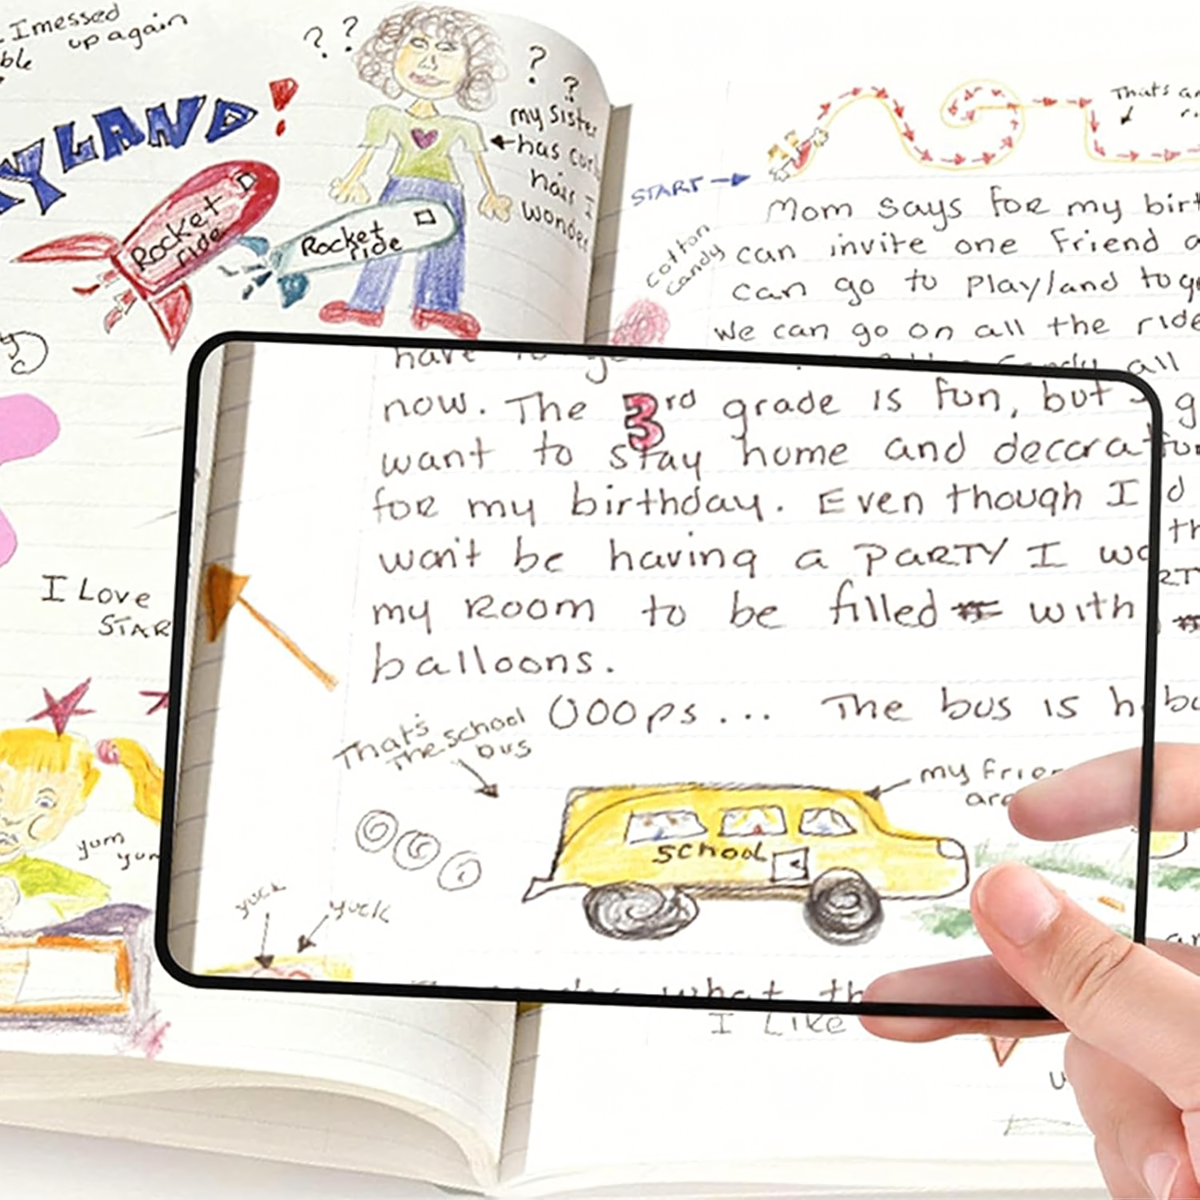 I messed
up again
ble
YLAND!
Rocket
ride
Rocket
ride
? ?
?
?
my sister
has
hair I
wonder
I Love
STAR
yum
START
That's
cotton
candy
Mom says for my
can invite one friend
can go to Playland
We can go on all the
all
have to
now. The 3rd grade is fun, but
want to stay home and
for my birthday. Even though I
won't be having a PARTY I
my Room to be filled with
balloons.
OOOps... The bus is
That's
the school
bus
my
SCHOOL
yuck
yuck
what
I Like